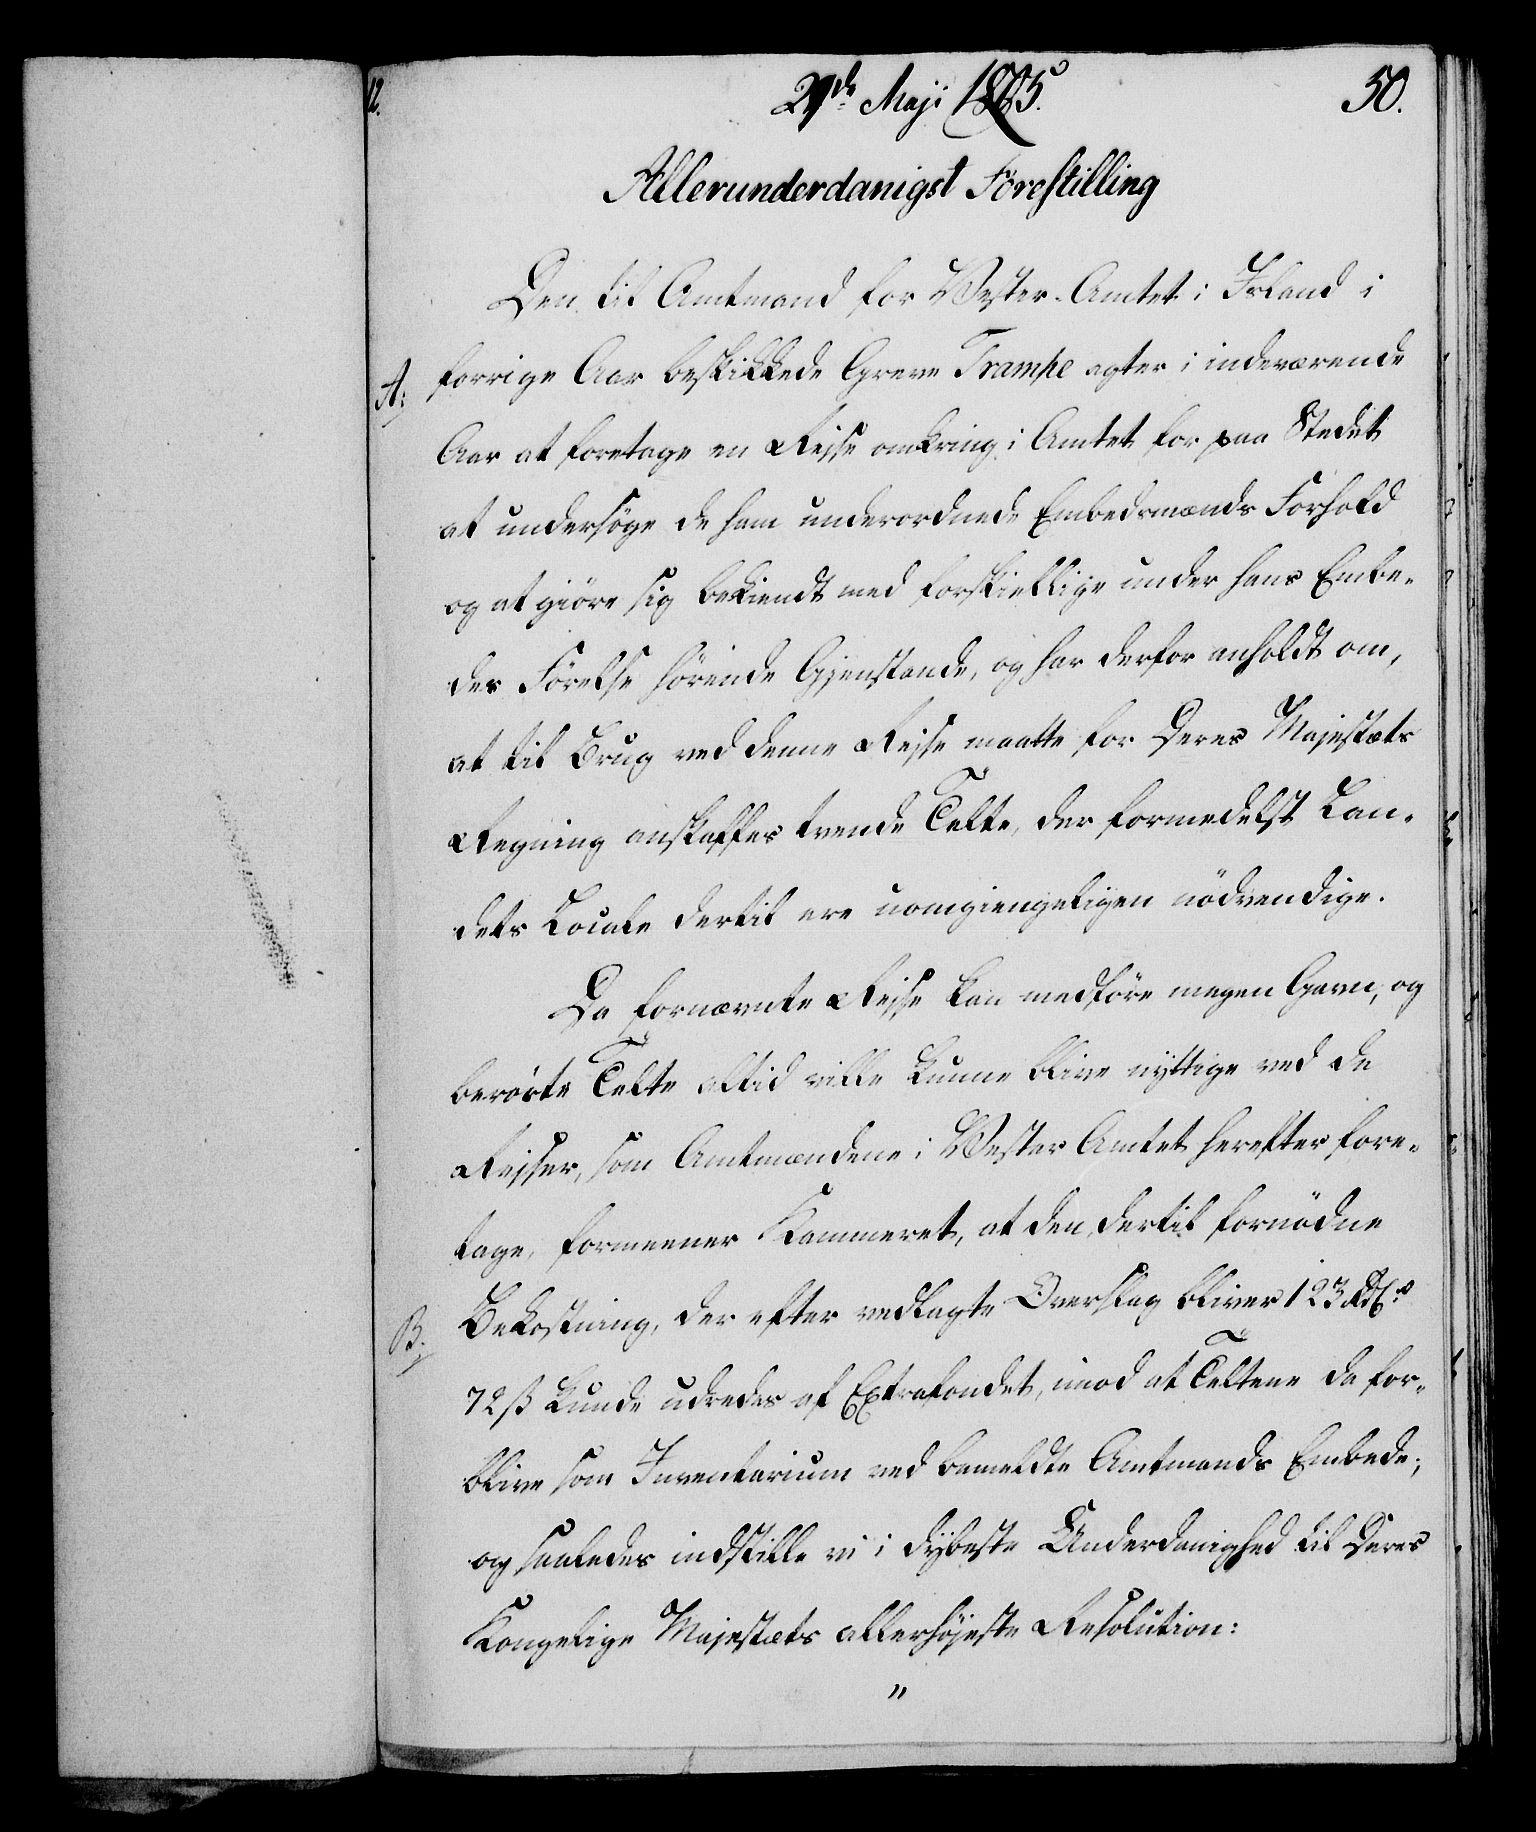 12.
29de Maji 1805.
50.
Allerunderdanigst Forestilling
Den til Amtmand for Vester-Amtet i Island i
A: forrige Aar beskikkede Greve Trampe agter i indeværende
Aar at foretage en Rejse omkring i Amtet for paa Stedet
at undersöge de ham underordnede Embedsmænds Forhold
og at giöre sig bekiendt med forskiellige under hans Embe-
des Förelse hörende Gjenstande, og har derfor anholdt om,
at til Brug ved denne Rejse maatte for Deres Majestæts
Regning anskaffes tvende Telte, der formedelst Lan-
dets Locale dertil ere uomgiengeligen nödvendige.
Da fornævnte Rejse kan medföre megen Gavn, og
berörte Telte altid ville kunne blive nyttige ved de
Rejser, som Amtmændene i Vester Amtet herefter fore-
tage, formeener Kammeret, at den dertil fornödne
B: Bekostning, der efter vedlagte Overslag bliver 123 Rdlr
72 ß kunde udredes af Extrafondet, imod at Teltene da for-
blive som Inventarium ved bemeldte Amtmands Embede;
og saaledes indstille vi i dybeste Underdanighed til Deres
Kongelige Majestæts allerhöjeste Resolution:
"